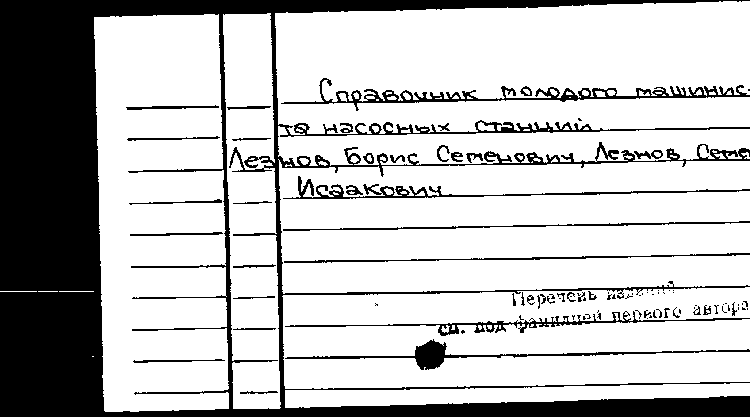 Справочник молодого машинис-
та насосных станций.
Лезнов, Борис Семенович, Лезнов, Семе
Исаакович.
Перечень изданий
см. под фамилией первого автора